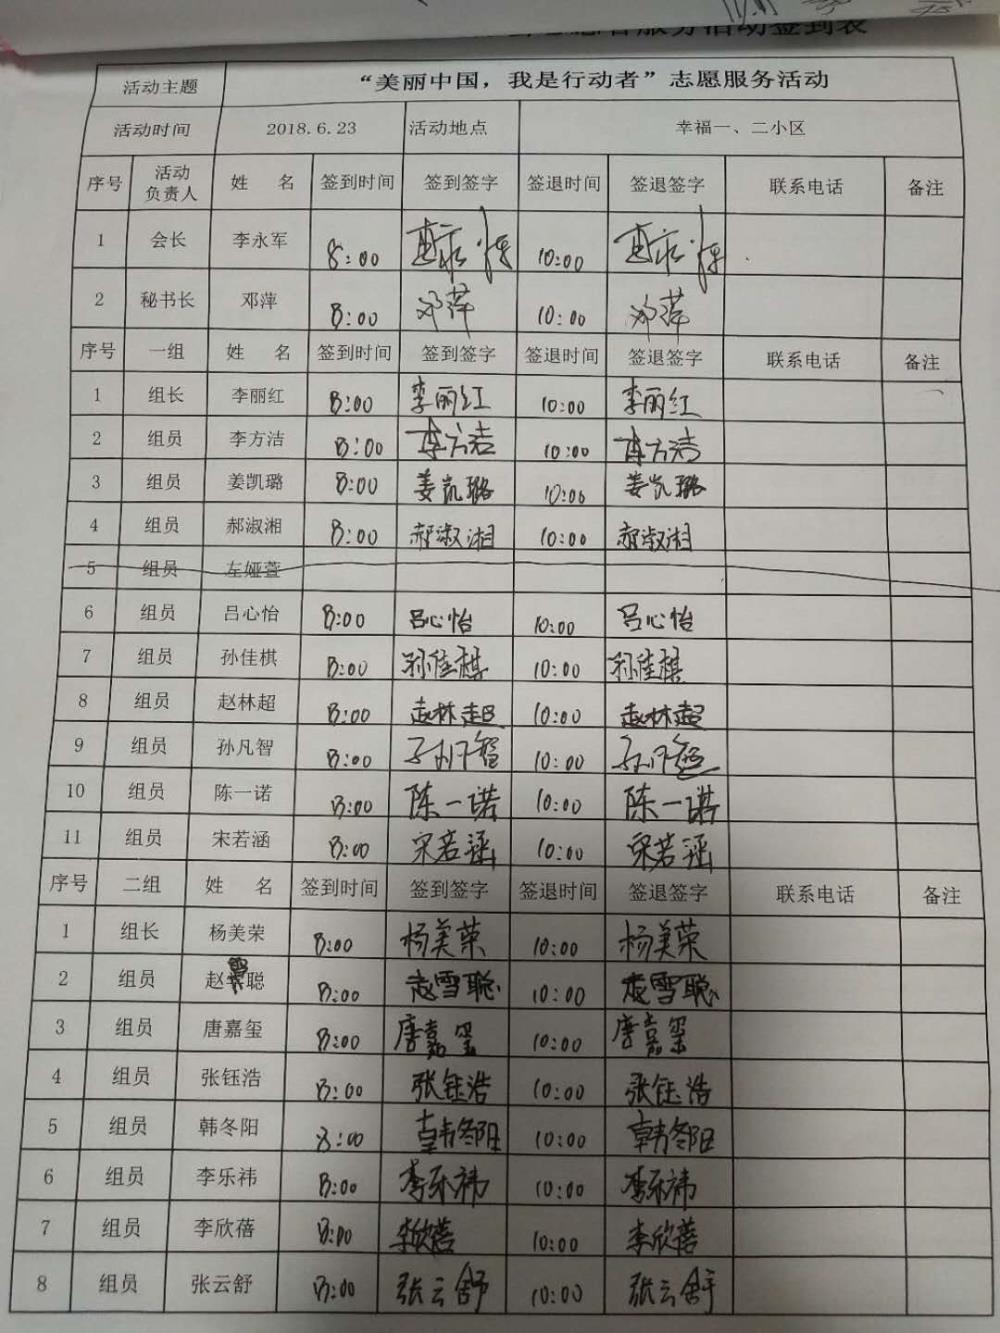 服务活动签到表
活动主题 “美丽中国，我是行动者”志愿服务活动
活动时间 2018.6.23 活动地点 幸福一、二小区
序号 活动负责人 姓 名 签到时间 签到签字 签退时间 签退签字 联系电话 备注
1 会长 李永军 8:00 10:00
2 秘书长 邓萍 8:00 邓萍 10:00 邓萍
序号 一组 姓 名 签到时间 签到签字 签退时间 签退签字 联系电话 备注
1 组长 李丽红 8:00 李丽红 10:00 李丽红
2 组员 李方洁 8:00 李方洁 10:00 李方洁
3 组员 姜凯璐 8:00 姜凯璐 10:00 姜凯璐
4 组员 郝淑湘 8:00 郝淑湘 10:00 郝淑湘
5 组员 左娅萱
6 组员 吕心怡 8:00 吕心怡 10:00 吕心怡
7 组员 孙佳棋 8:00 孙佳棋 10:00 孙佳棋
8 组员 赵林超 8:00 赵林超 10:00 赵林超
9 组员 孙凡智 8:00 孙凡智 10:00 孙凡智
10 组员 陈一诺 8:00 陈一诺 10:00 陈一诺
11 组员 宋若涵 8:00 宋若涵 10:00 宋若涵
序号 二组 姓 名 签到时间 签到签字 签退时间 签退签字 联系电话 备注
1 组长 杨美荣 8:00 杨美荣 10:00 杨美荣
2 组员 赵雪聪 8:00 赵雪聪 10:00 赵雪聪
3 组员 唐嘉玺 8:00 唐嘉玺 10:00 唐嘉玺
4 组员 张钰浩 8:00 张钰浩 10:00 张钰浩
5 组员 韩冬阳 8:00 韩冬阳 10:00 韩冬阳
6 组员 李乐祎 8:00 李乐祎 10:00 李乐祎
7 组员 李欣蓓 8:00 李欣蓓 10:00 李欣蓓
8 组员 张云舒 8:00 张云舒 10:00 张云舒